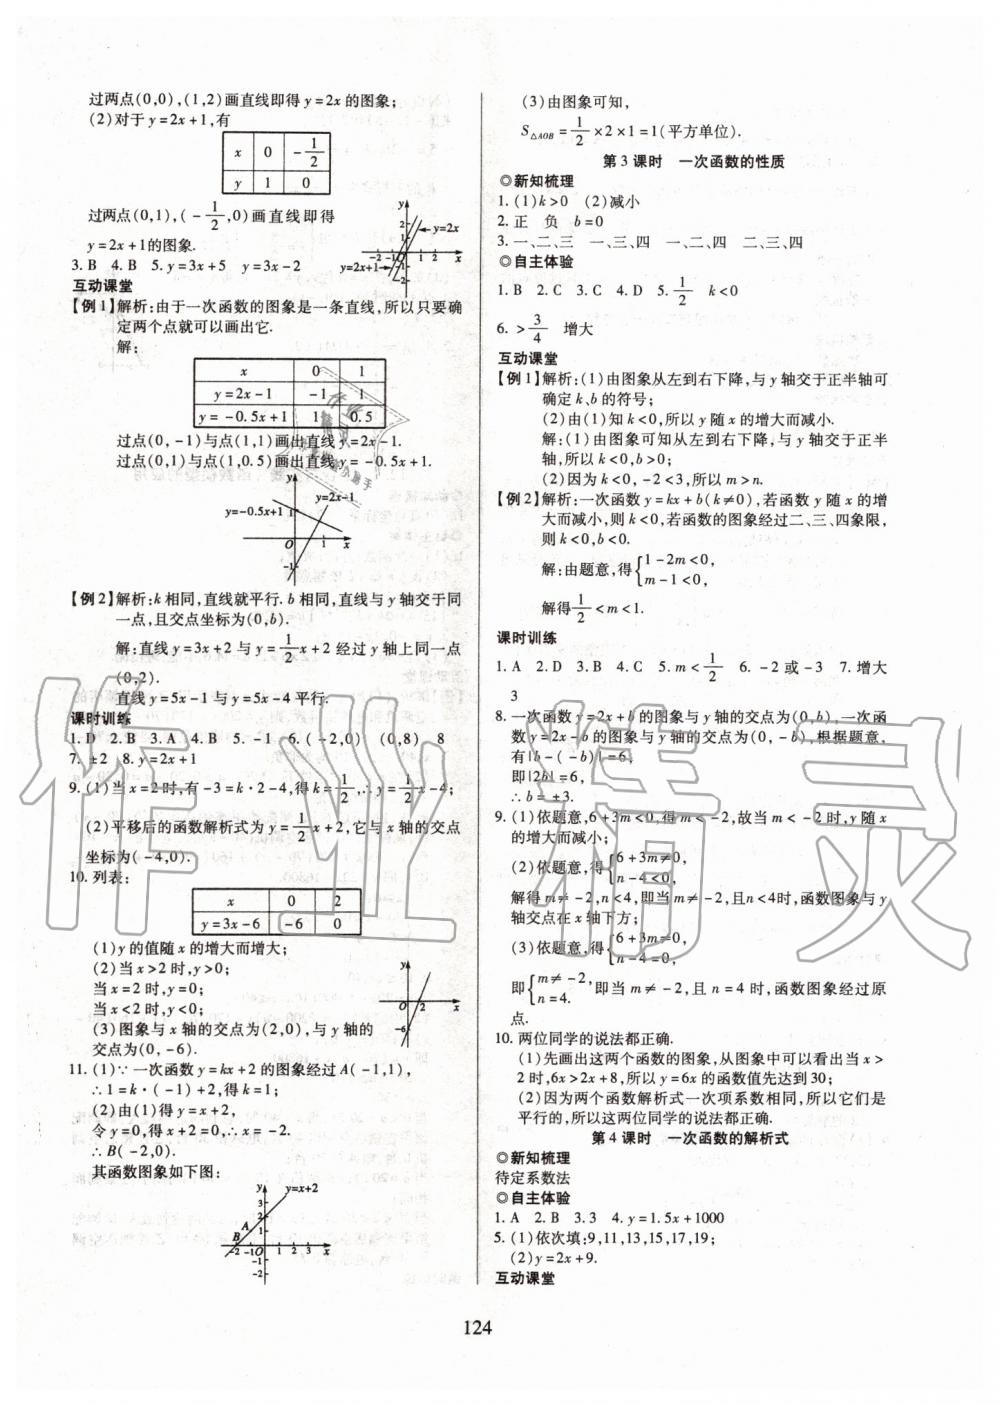 过两点(0,0),(1,2)画直线即得 y=2x 的图象;
(2)对于 y=2x+1,有
x 0 -1/2
y 1 0
过两点(0,1),(-1/2,0)画直线即得
y=2x+1的图象.
y=2x
y=2x+1
3. B 4. B 5. y=3x+5 y=3x-2
互动课堂
【例1】解析:由于一次函数的图象是一条直线,所以只要确
定两个点就可以画出它.
解:
x 0 1
y=2x-1 -1 1
y=-0.5x+1 1 0.5
过点(0,-1)与点(1,1)画出直线 y=2x-1.
过点(0,1)与点(1,0.5)画出直线 y=-0.5x+1.
y=2x-1
y=-0.5x+1
【例2】解析:k 相同,直线就平行. b 相同,直线与 y 轴交于同
一点,且交点坐标为(0,b).
解:直线 y=3x+2 与 y=1/2x+2 经过 y 轴上同一点
(0,2).
直线 y=5x-1 与 y=5x-4 平行.
课时训练
1. D 2. B 3. A 4. B 5. -1 6. (-2,0) (0,8) 8
7. ±2 8. y=2x+1
9. (1)当 x=2 时,有 -3=k·2-4,得 k=1/2,∴y=1/2x-4;
(2)平移后的函数解析式为 y=1/2x+2,它与 x 轴的交点
坐标为(-4,0).
10. 列表:
x 0 2
y=3x-6 -6 0
(1)y 的值随 x 的增大而增大;
(2)当 x>2 时,y>0;
当 x=2 时,y=0;
当 x<2 时,y<0;
(3)图象与 x 轴的交点为(2,0),与 y 轴的
交点为(0,-6).
11. (1)∵一次函数 y=kx+2 的图象经过 A(-1,1),
∴1=k·(-1)+2,得 k=1;
(2)由(1)得 y=x+2,
令 y=0,得 x+2=0,∴x=-2.
∴B(-2,0).
其函数图象如下图:
y=x+2
(3)由图象可知,
S△AOB=1/2×2×1=1(平方单位).
第3课时 一次函数的性质
◎新知梳理
1. (1)k>0 (2)减小
2. 正 负 b=0
3. 一、二、三 一、三、四 一、二、四 二、三、四
◎自主体验
1. B 2. C 3. C 4. D 5. 1/2 k<0
6. >3/4 增大
互动课堂
【例1】解析:(1)由图象从左到右下降,与 y 轴交于正半轴可
确定 k、b 的符号;
(2)由(1)知 k<0,所以 y 随 x 的增大而减小.
解:(1)由图象可知从左到右下降,与 y 轴交于正半
轴,所以 k<0,b>0;
(2)因为 k<0,-2<3,所以 m>n.
【例2】解析:一次函数 y=kx+b(k≠0),若函数 y 随 x 的增
大而减小,则 k<0,若函数的图象经过二、三、四象限,
则 k<0,b<0.
解:由题意,得{1-2m<0, m-1<0,
解得1/2<m<1.
课时训练
1. A 2. D 3. B 4. C 5. m<1/2 6. -2 或 -3 7. 增大
3
8. 一次函数 y=2x+b 的图象与 y 轴的交点为(0,b),一次函
数 y=2x-b 的图象与 y 轴的交点为(0,-b),根据题意,
有|b-(-b)|=6,
即|2b|=6,
∴b=±3.
9. (1)依题意,6+3m<0,得 m<-2,故当 m<-2时,y 随 x
的增大而减小;
(2)依题意,得{6+3m≠0, n-4<0,
解得 m≠-2,n<4,即当 m≠-2,且 n<4时,函数图象与 y
轴交点在 x 轴下方;
(3)依题意,得{6+3m≠0, n-4=0,
即{m≠-2, n=4. 即当 m≠-2,且 n=4 时,函数图象经过原
点.
10. 两位同学的说法都正确.
(1)先画出这两个函数的图象,从图象中可以看出当 x>
2时,6x>2x+8,所以 y=6x 的函数值先达到30;
(2)因为两个函数解析式一次项系数相同,所以它们是
平行的,所以这两位同学的说法都正确.
第4课时 一次函数的解析式
◎新知梳理
待定系数法
◎自主体验
1. A 2. B 3. 3 4. y=1.5x+1000
5. (1)依次填:9,11,13,15,17,19;
(2)y=2x+9.
互动课堂
124
作业精灵